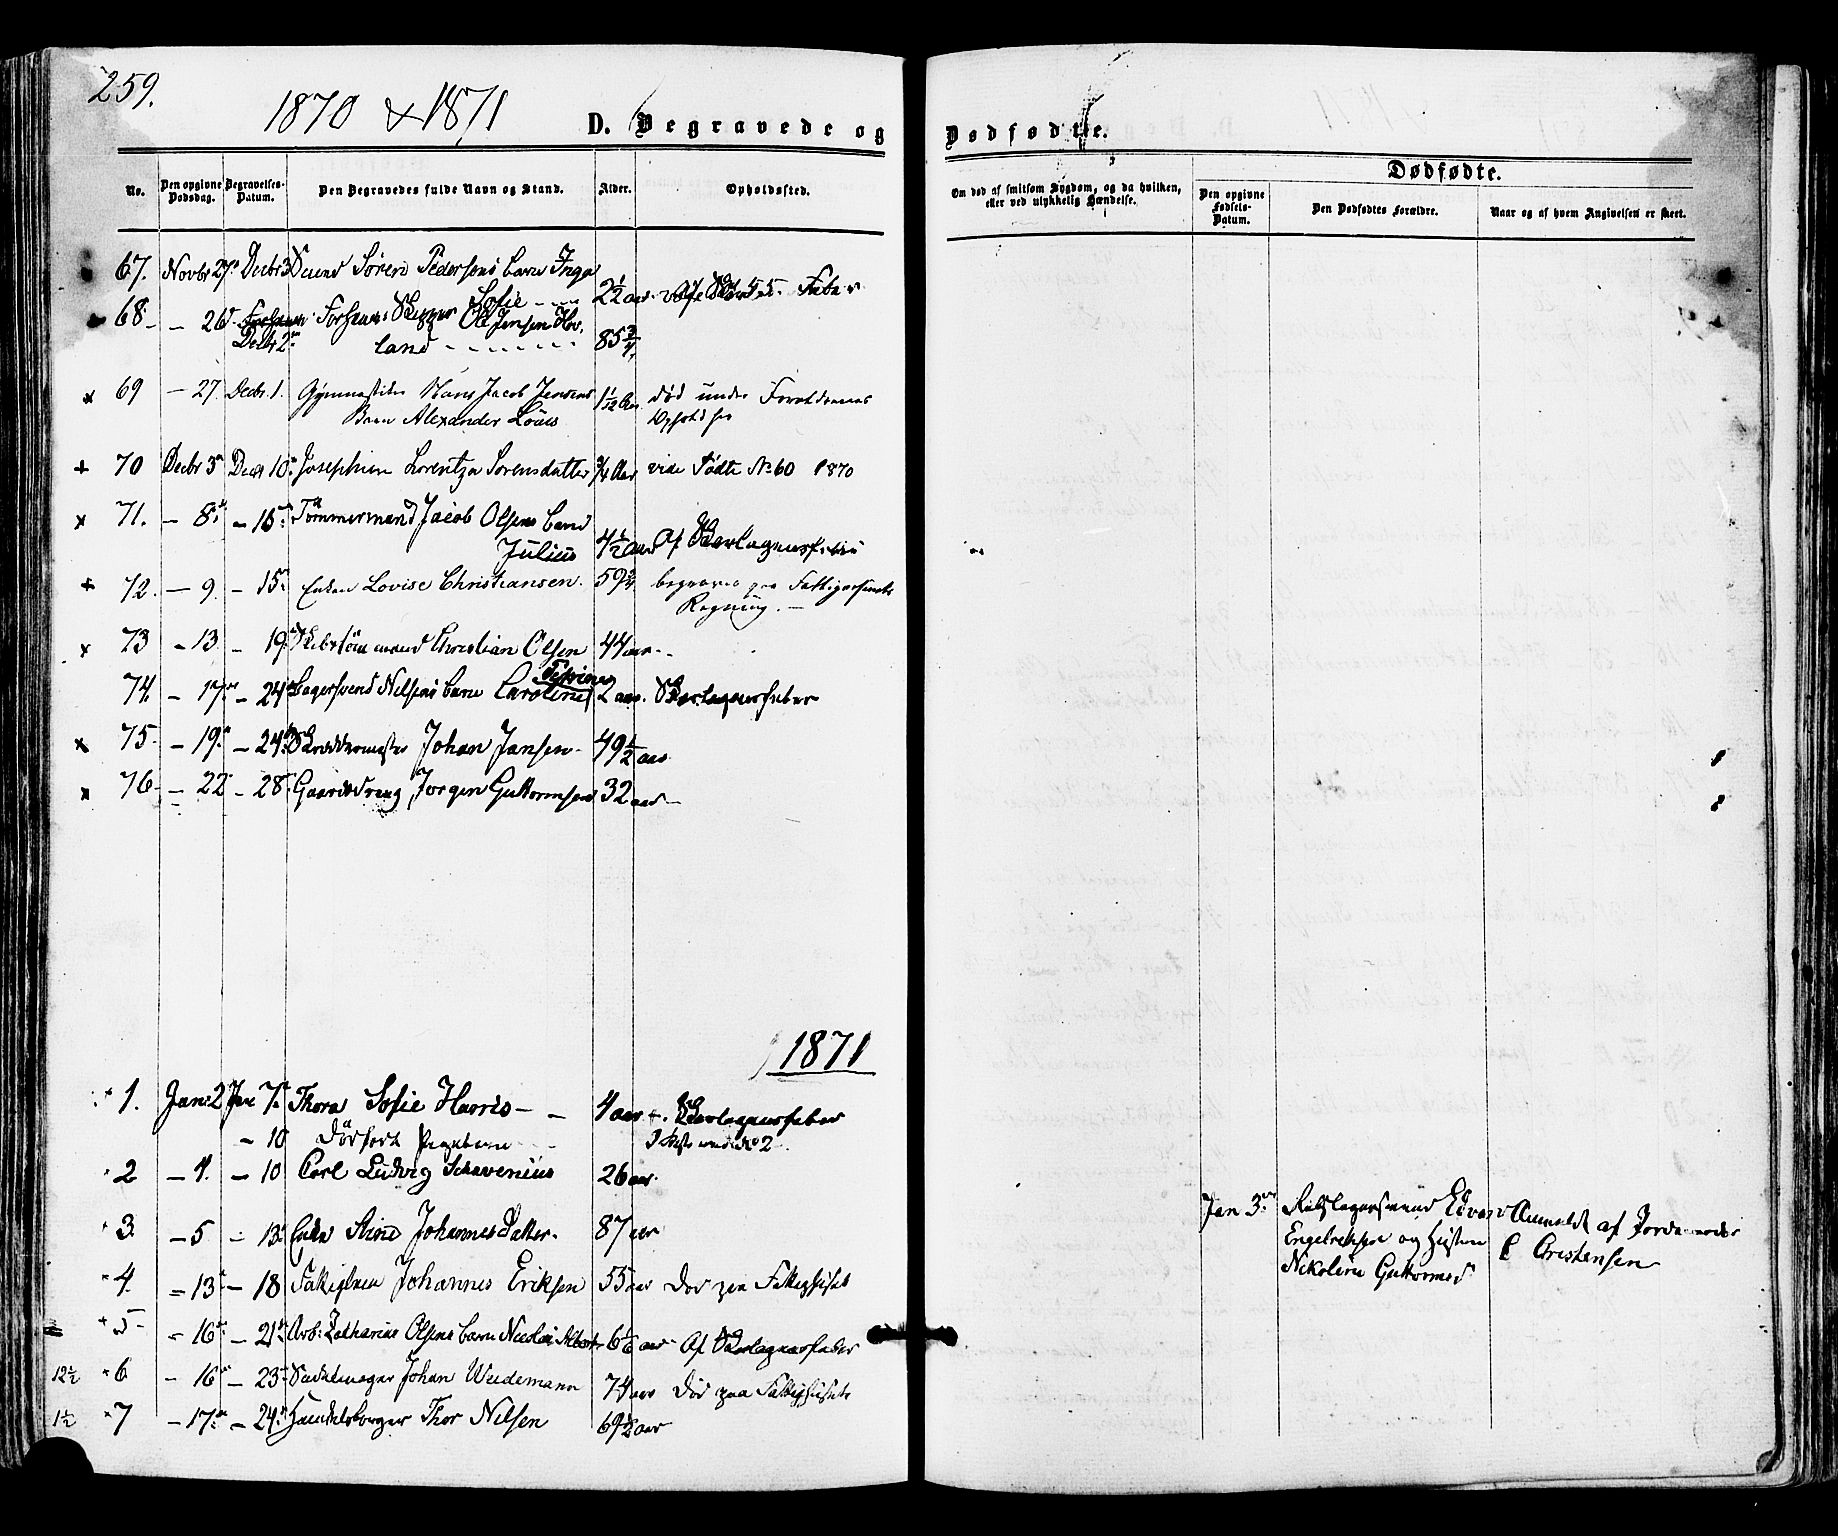 259.
1870 & 1871
D. Begravede og
Dødfødte.
No.
Den opgivne Dødsdag.
Begravelses-Datum.
Den Begravedes fulde Navn og Stand.
Alder.
Opholdssted.
Om død af smitsom Sygdom, og da hvilken, eller ved ulykkelig Hændelse.
Dødfødte.
Den opgivne Fødsels-Datum.
Den Dødfødtes Forældre.
Naar og af hvem Angivelsen er skeet.
67. Novbr 27 Decbr 3 Søren Pedersens barn Inga
Sofie 2½ aar
68. – 26 Skipper Ole Jensen Hov-
Decbr 2 land 85¾
69 – 27. Decbr. 1. Hans Jacob Jensens 1 1/12 Aar død under Forældrenes
Barn Alexander Louis Ophold her
70 Decbr 3 Decbr 10 Josephine Lorentza Sørensdatter ¾ Aar vide Fødte No 60 1870
71. – 8 – 15 Tømmermand Jacob Olsens barn
Julius 4½ aar Af Skarlagensfeber
72. – 9. – 15 Enken Lovise Christiansen. 59¾ begravet paa Fattigvæsenets
Regning. –
73 – 13 – 19 Skibstømmermand Christian Olsen 44 aar
74. – 17 – 24 Lagersvend Nilsens barn Caroline 2 aar. Skarlagensfeber
75 – 19 – 24 Skreddermester Johan Jansen 49½ aar
76 – 22 – 28 Gaardsdreng Jørgen Guttormsen 32 aar
1871
1. Jan 2 Jan 7 Thora Sofie Harris 4 aar Skarlagensfeber
– 10 Dødfødt Pigebarn I Kiste med No 2
2 – 4. – 10 Carl Ludvig Schavenius 26 aar
3. – 5 – 13 Enke Stine Johannesdatter. 87 aar
4. – 13 – 18 Johannes Eriksen 55 aar Død paa Fattighuset
5 – 16 – 21 Arb: Zacharias Olsens barn Nicolai Albert 6½ aar Af Skarlagensfeber
12½ 6 – 16 – 23 Sadelmager Johan Weidemann 74 aar Død paa Fattighuset
1½ 7 – 17 – 24 Handelsborger Thor Nilsen 69½ aar
Jan 3 Edvard Anmeldt af Jordemoder
Engebretsen og Hustru C Cristensen
Nikoline Guttormsd